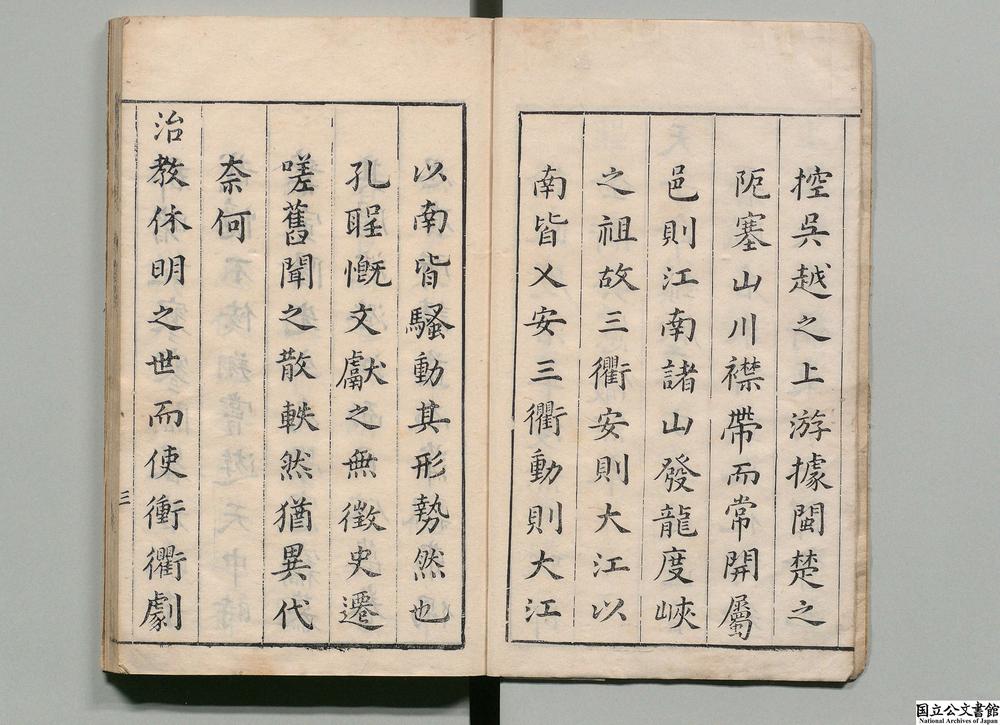 控吳越之上游據閩楚之
阨塞山川襟帶而常開屬
邑則江南諸山發龍度峽
之祖故三衢安則大江以
南皆乂安三衢動則大江
以南皆騷動其形勢然也
孔聖慨文獻之無徵史遷
嗟舊聞之散軼然猶異代
奈何
治教休明之世而使衝衢劇
三
国立公文書館
National Archives of Japan